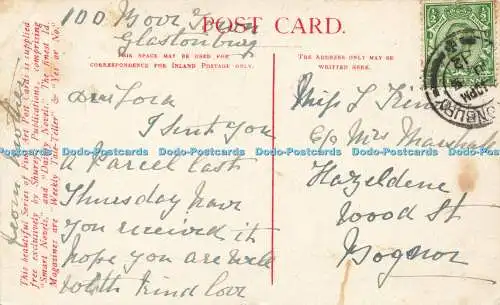 100 Bove Town
Glastonbury
POST CARD.
THIS SPACE MAY BE USED FOR
CORRESPONDENCE FOR INLAND POSTAGE ONLY.
THE ADDRESS ONLY MAY BE
WRITTEN HERE.
Dear
I sent you
a Parcel last
Thursday have
you received it
hope you are well
with kind love
from
Miss L
c/o Mrs
Hazeldene
Wood St
Bognor
This beautiful Series of Fine Art Post Cards is supplied
free exclusively by Shurey's Publications, comprising
"Smart Novels," and "Dainty Novels." The finest 1d.
Magazines are "Weekly Tale-Teller" & "Yes or No."
Dodo-Postcards Dodo-Postcards Dodo-Postcards Dodo-Postcards Dodo-Postcards